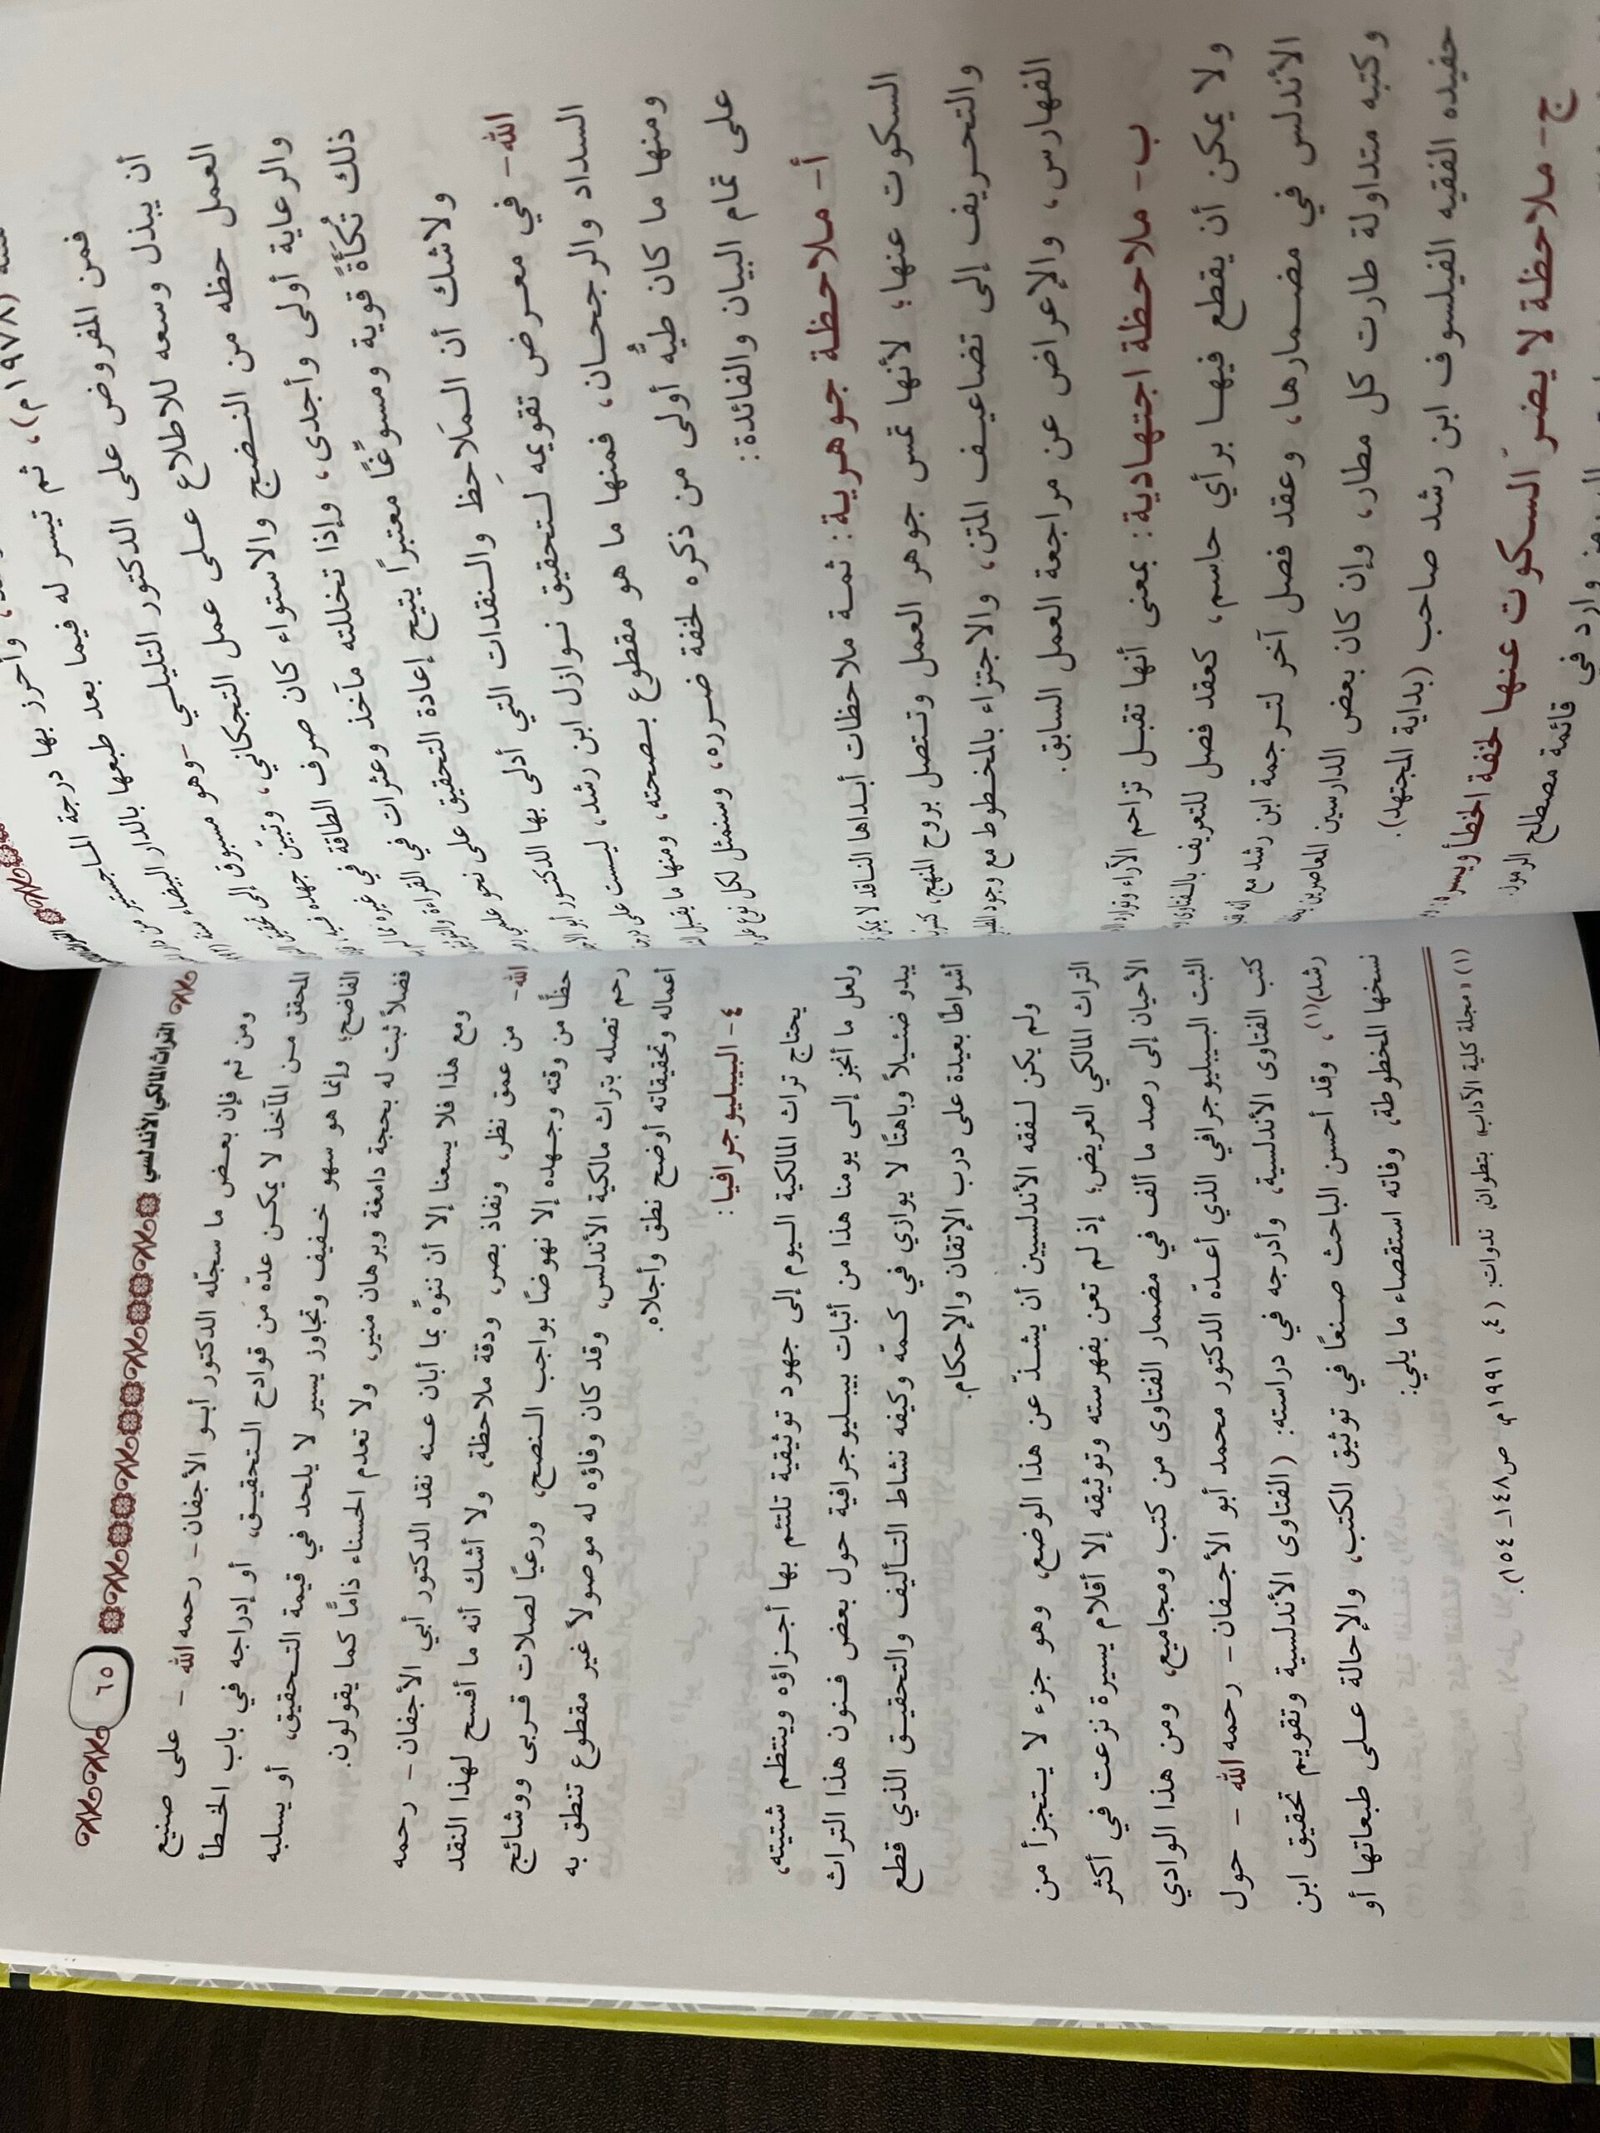 (١٩٧٨م)، ثم تيسر له فيما بعد طبعها بالدار البيضاء سنة
وأحرز بها درجة الماجستير من دار
فمن المفروض على الدكتور التليلي -وهو مسبوق إلى تحقيق
أن يبذل وسعه للاطلاع على عمل التجكاني، وتبيّن جهده فيه،
العمل حظه من النضج والاستواء كان صرف الطاقة في غيره مما
والرعاية أولى وأجدى، وإذا تخللته مآخذ وعثرات في القراءة والتوثيق
ذلك تُكَأَةً قوية ومسوغًا معتبرًا يتيح إعادة التحقيق على نحو علمي
ولاشك أن المَلَاحِظ والنقدات التي أدلى بها الدكتور أبو
الله- في معرض تقويمه لتحقيق نوازل ابن رشد، ليست على
السداد والرجحان، فمنها ما هو مقطوع بصحته، ومنها ما يقبل
ومنها ما كان طيُّه أولى من ذكره لخفة ضرره، وسنمثل لكل نوع على
على تمام البيان والفائدة:
أ- ملاحظة جوهرية: ثمة ملاحظات أبداها الناقد لا يمكن
السكوت عنها؛ لأنها تمس جوهر العمل وتتصل بروح المنهج،
والتحريف إلى تضاعيف المتن، والاجتزاء بالمخطوط مع وجود
الفهارس، والإعراض عن مراجعة العمل السابق.
ب- ملاحظة اجتهادية: بمعنى أنها تقبل تزاحم الآراء وتوارد
ولا يمكن أن يقطع فيها برأي حاسم، كعقد فصل للتعريف بالفتاوى
الأندلس في مضمارها، وعقد فصل آخر لترجمة ابن رشد مع أنه
وكتبه متداولة طارت كل مطار، وإن كان بعض الدارسين المعاصرين
حفيده الفقيه الفيلسوف ابن رشد صاحب (بداية المجتهد).
ج- ملاحظة لا يضرّ السكوت عنها لخفة الخطأ ويسره:
وارد في قائمة مصطلح الرموز.
٦٥
التراث المالكي الأندلسي
ومن ثم فإن بعض ما سجّله الدكتور أبو الأجفان- رحمه الله - على صنيع
المحقق من المآخذ لا يمكن عدّه من قوادح التحقيق، أو إدراجه في باب الخطأ
الفاضح؛ وإنما هو سهو خفيف وتجاوز يسير لا يلحد في قيمة التحقيق، أو يسلبه
فضلاً ثبت له بحجة دامغة وبرهان منير، ولا تعدم الحسناء ذامًّا كما يقولون.
ومع هذا فلا يسعنا إلا أن ننوِّه بما أبان عنه نقد الدكتور أبي الأجفان - رحمه
الله- من عمق نظر، ونفاذ بصر، ودقة ملاحظة، ولا أشك أنه ما أفسح لهذا النقد
حظًّا من وقته وجهده إلا نهوضًا بواجب النصح، ورعيًا لصلات قربى ووشائج
رحم تصله بتراث مالكية الأندلس، وقد كان وفاؤه له موصولاً غير مقطوع تنطق به
أعماله وتحقيقاته أوضح نطق وأجلاه.
٤- البيبليوجرافيا:
يحتاج تراث المالكية اليوم إلى جهود توثيقية تلتئم بها أجزاؤه وينتظم شتيته،
ولعل ما أنجز إلى يومنا هذا من أثبات بيبليوجرافية حول بعض فنون هذا التراث
يبدو ضئيلاً وباهتًا لا يوازي في كمّه وكيفه نشاط التأليف والتحقيق الذي قطع
أشواطًا بعيدة على درب الإتقان والإحكام.
ولم يكن لفقه الأندلسيين أن يشذّ عن هذا الوضع، وهو جزء لا يتجزأ من
التراث المالكي العريض؛ إذ لم تعن بفهرسته وتوثيقه إلا أقلام يسيرة نزعت في أكثر
الأحيان إلى رصد ما ألف في مضمار الفتاوى من كتب ومجاميع، ومن هذا الوادي
الثبت البيبليوجرافي الذي أعدّه الدكتور محمد أبو الأجفان- رحمه الله - حول
كتب الفتاوى الأندلسية، وأدرجه في دراسته: (الفتاوى الأندلسية وتقويم تحقيق ابن
رشد)(١)، وقد أحسن الباحث صنعًا في توثيق الكتب، والإحالة على طبعاتها أو
نسخها المخطوطة، وفاته استقصاء ما يلي:
(١) (مجلة كلية الآداب، بتطوان، ندوات: (٤، ١٩٩١م، ص١٤٨- ١٥٤).